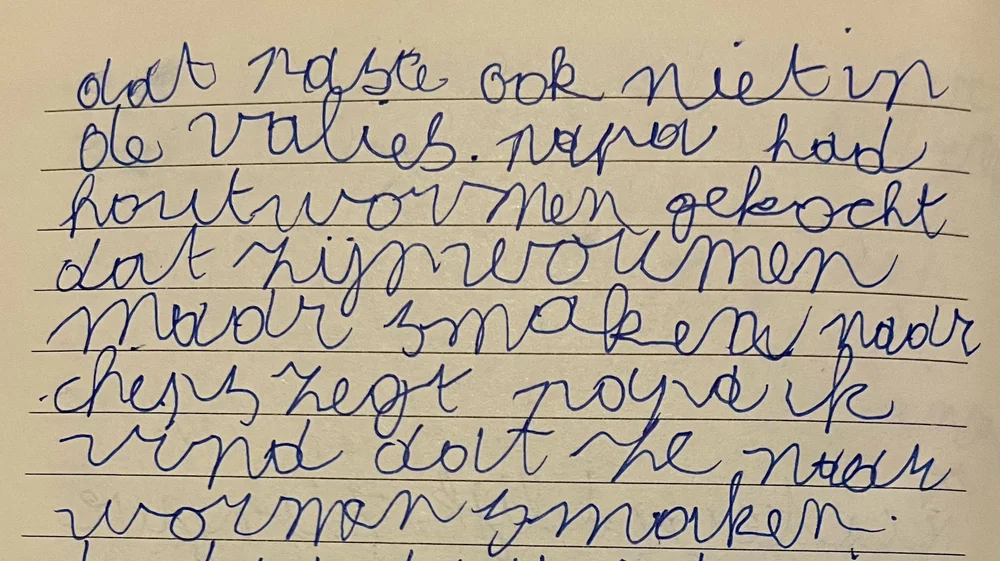 dat paste ook niet in
de valies. papa had
houtwormen gekocht
dat zijn wormen
maar smaken naar
chips zegt papa ik
vind dat ze naar
wormen smaken.